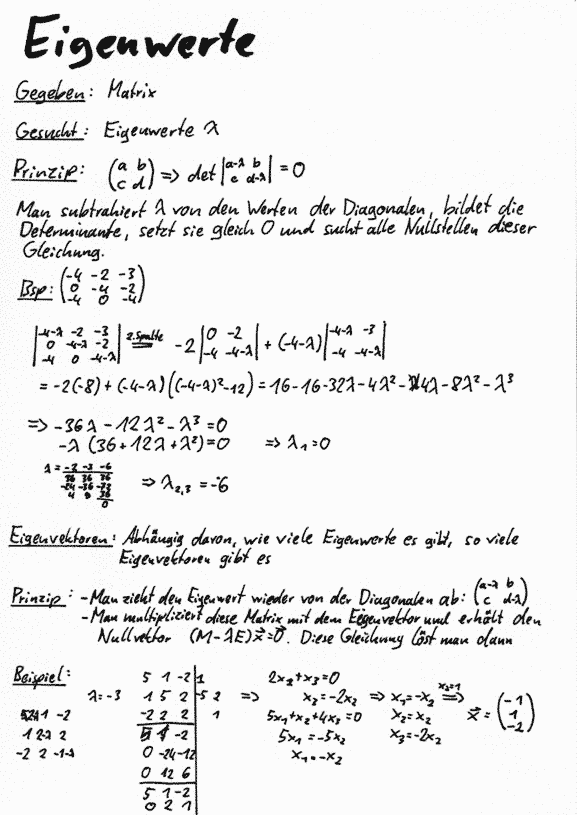 Eigenwerte
Gegeben: Matrix
Gesucht: Eigenwerte λ
Prinzip: (a b; c d) => det |a-λ b; c d-λ| = 0
Man subtrahiert λ von den Werten der Diagonalen, bildet die
Determinante, setzt sie gleich 0 und sucht alle Nullstellen dieser
Gleichung.
Bsp: (-4 -2 -3; 0 -4 -2; -4 0 -4)
|-4-λ -2 -3; 0 -4-λ -2; -4 0 -4-λ| 2.Spalte = -2 |0 -2; -4 -4-λ| + (-4-λ) |-4-λ -3; -4 -4-λ|
= -2(-8) + (-4-λ)((-4-λ)²-12) = 16-16-32λ-4λ²-4λ-8λ²-λ³
=> -36λ-12λ²-λ³=0
-λ (36+12λ+λ²)=0 => λ₁=0
λ = -2 -3 -6
36 36 36
-24 -36 -72
4 9 36
0
=> λ₂,₃ = -6
Eigenvektoren: Abhängig davon, wie viele Eigenwerte es gibt, so viele
Eigenvektoren gibt es
Prinzip: -Man zieht den Eigenwert wieder von der Diagonalen ab: (a-λ b; c d-λ)
-Man multipliziert diese Matrix mit dem Eigenvektor und erhält den
Nullvektor (M-λE)x⃗=0⃗. Diese Gleichung löst man dann
Beispiel:
λ=-3
1 2-λ 2
-2 2 -1-λ
5 1 -2 1
1 5 2 -5 2
-2 2 2 1
5 1 -2
0 -24 -12
0 12 6
5 1 -2
0 2 1
2x₂+x₃=0
=> x₃=-2x₂
5x₁+x₂+4x₂=0
5x₁=-5x₂
x₁=-x₂
=> x₁=-x₂
x₂=x₂
x₃=-2x₂
x₂=1 => x⃗ = (-1; 1; -2)